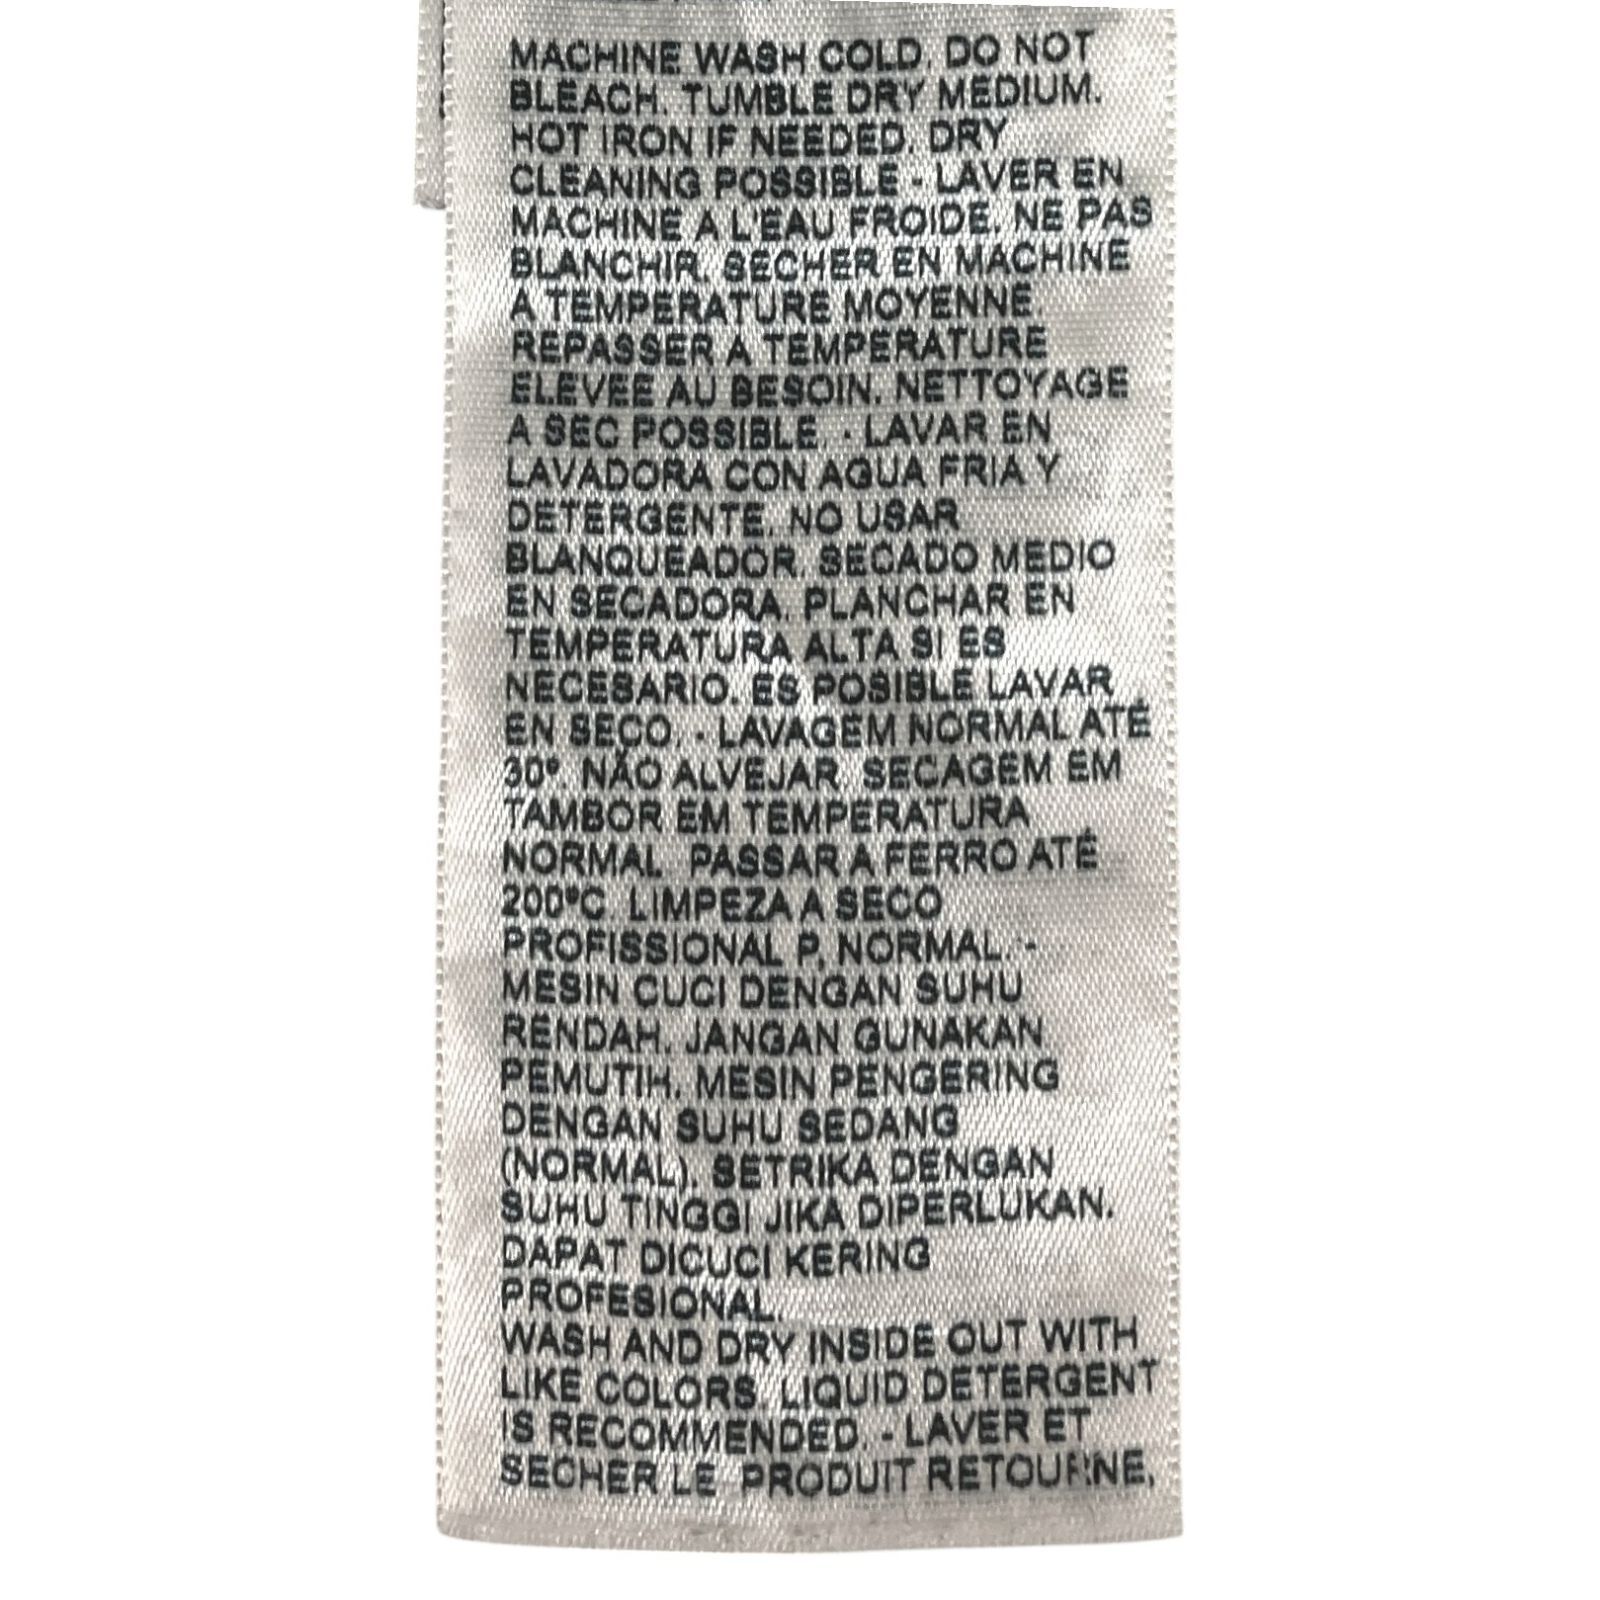 MACHINE WASH COLD. DO NOT
BLEACH. TUMBLE DRY MEDIUM.
HOT IRON IF NEEDED. DRY
CLEANING POSSIBLE - LAVER EN
MACHINE A L'EAU FROIDE. NE PAS
BLANCHIR. SECHER EN MACHINE
A TEMPERATURE MOYENNE.
REPASSER A TEMPERATURE
ELEVEE AU BESOIN. NETTOYAGE
A SEC POSSIBLE. - LAVAR EN
LAVADORA CON AGUA FRIA Y
DETERGENTE. NO USAR
BLANQUEADOR. SECADO MEDIO
EN SECADORA. PLANCHAR EN
TEMPERATURA ALTA SI ES
NECESARIO. ES POSIBLE LAVAR
EN SECO. - LAVAGEM NORMAL ATÉ
30º. NÃO ALVEJAR. SECAGEM EM
TAMBOR EM TEMPERATURA
NORMAL. PASSAR A FERRO ATÉ
200ºC. LIMPEZA A SECO
PROFISSIONAL P, NORMAL. -
MESIN CUCI DENGAN SUHU
RENDAH. JANGAN GUNAKAN
PEMUTIH. MESIN PENGERING
DENGAN SUHU SEDANG
(NORMAL). SETRIKA DENGAN
SUHU TINGGI JIKA DIPERLUKAN.
DAPAT DICUCI KERING
PROFESIONAL.
WASH AND DRY INSIDE OUT WITH
LIKE COLORS. LIQUID DETERGENT
IS RECOMMENDED. - LAVER ET
SECHER LE PRODUIT RETOURNE,